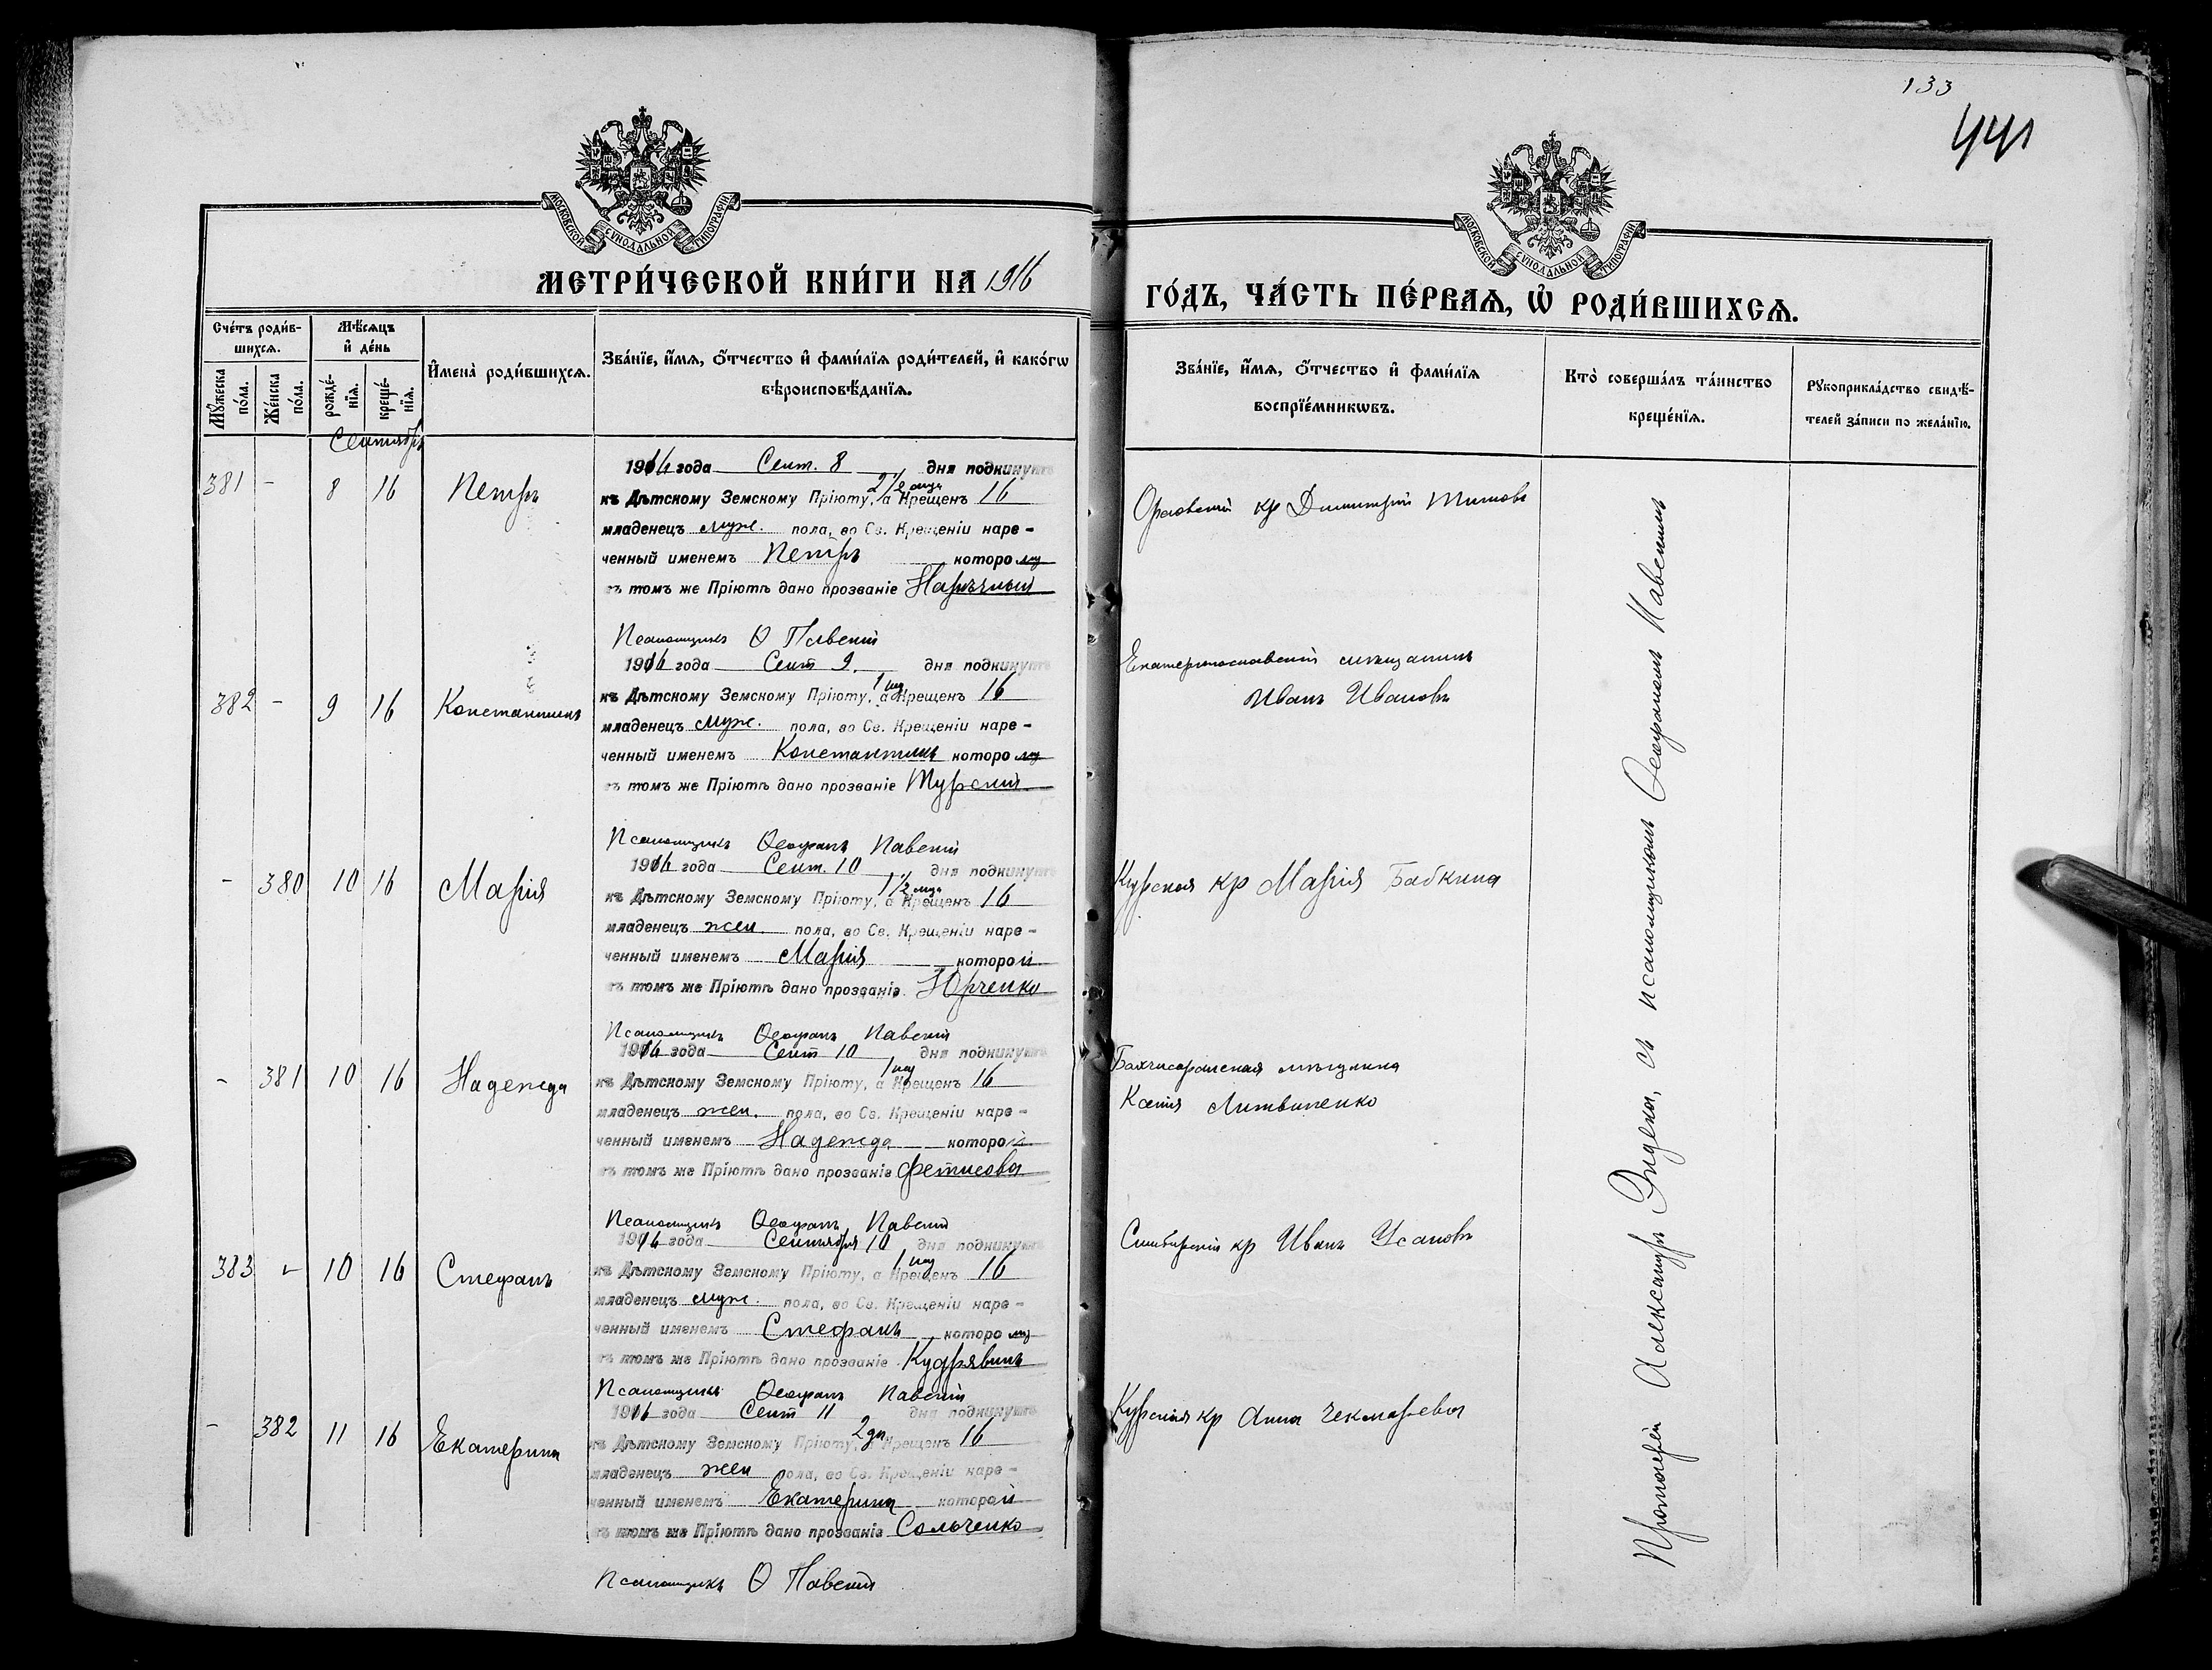 133
441
МОСКОВСКОЙ СѴНОДАЛЬНОЙ ТИПОГРАФІИ
МОСКОВСКОЙ СѴНОДАЛЬНОЙ ТИПОГРАФІИ
МЕТРИ́ЧЕСКОЙ КНИ́ГИ НА 1916
ГО́ДЪ, ЧА́СТЬ ПЕ́РВАѦ, Ѡ҆ РОДИ́ВШИХСѦ.
Сче́тъ роди́в-
шихсѧ.
Мꙋ́жеска по́ла.
Же́нска по́ла.
Мѣ́сѧцъ
и҆ де́нь
рожде́-
нїѧ.
креще́-
нїѧ.
И҆мена̀ роди́вшихсѧ.
Зва́нїе, и҆́мѧ, ѻ҆́тчество и҆ фами́лїѧ роди́телей, и҆ како́гѡ
вѣроисповѣ́данїѧ.
Зва́нїе, и҆́мѧ, ѻ҆́тчество и҆ фами́лїѧ
воспрїе́мникѡвъ.
Кто̀ соверша́лъ та́инство
креще́нїѧ.
Рꙋкоприкла́дство свидѣ́-
телей за́писи по жела́нїю.
Сентября
381 - 8 16 Петръ
1916 года Сент. 8 дня подкинутъ
къ Дѣтскому Земскому Пріюту, 2 1/2 мца а Крещенъ 16
младенецъ муж. пола, во Св. Крещеніи наре-
ченный именемъ Петръ которому
въ томъ же Пріютѣ дано прозваніе Нарѣчный
Псаломщикъ Ѳ Павскій
Орловскій кр Димитрій Титовъ
382 - 9 16 Константинъ
1916 года Сент 9. дня подкинутъ
къ Дѣтскому Земскому Пріюту, 1 мц а Крещенъ 16
младенецъ муж. пола, во Св. Крещеніи наре-
ченный именемъ Константинъ которому
въ томъ же Пріютѣ дано прозваніе Турскій
Псаломщикъ Ѳеофанъ Павскій
Екатеринославскій мѣщанинъ
Иванъ Ивановъ
- 380 10 16 Марія
1916 года Сент. 10 дня подкинутъ
къ Дѣтскому Земскому Пріюту, 1 1/2 мца а Крещенъ 16
младенецъ жен. пола, во Св. Крещеніи наре-
ченный именемъ Марія которой
въ томъ же Пріютѣ дано прозваніе Юрченко
Псаломщикъ Ѳеофанъ Павскій
Курская кр Марія Бабкина
- 381 10 16 Надежда
1916 года Сент 10 дня подкинутъ
къ Дѣтскому Земскому Пріюту, 1 мц а Крещенъ 16
младенецъ жен. пола, во Св. Крещеніи наре-
ченный именемъ Надежда которой
въ томъ же Пріютѣ дано прозваніе Фетисова
Псаломщикъ Ѳеофанъ Павскій
Бахчисарайская мѣщанка
Ксенія Литвиненко
383 - 10 16 Стефанъ
1916 года Сентября 10 дня подкинутъ
къ Дѣтскому Земскому Пріюту, 1 мц а Крещенъ 16
младенецъ муж. пола, во Св. Крещеніи наре-
ченный именемъ Стефанъ которому
въ томъ же Пріютѣ дано прозваніе Кудрявинъ
Псаломщикъ Ѳеофанъ Павскій
Симбирскій кр Иванъ Усановъ
- 382 11 16 Екатерина
1916 года Сент 11 дня подкинутъ
къ Дѣтскому Земскому Пріюту, 2 дн а Крещенъ 16
младенецъ жен пола, во Св. Крещеніи наре-
ченный именемъ Екатерина которой
въ томъ же Пріютѣ дано прозваніе Сольченко
Псаломщикъ Ѳ Павскій
Курская кр Анна Чекмарева
Протоіерей Александръ Эндека, съ псаломщикомъ Ѳеофаномъ Павскимъ